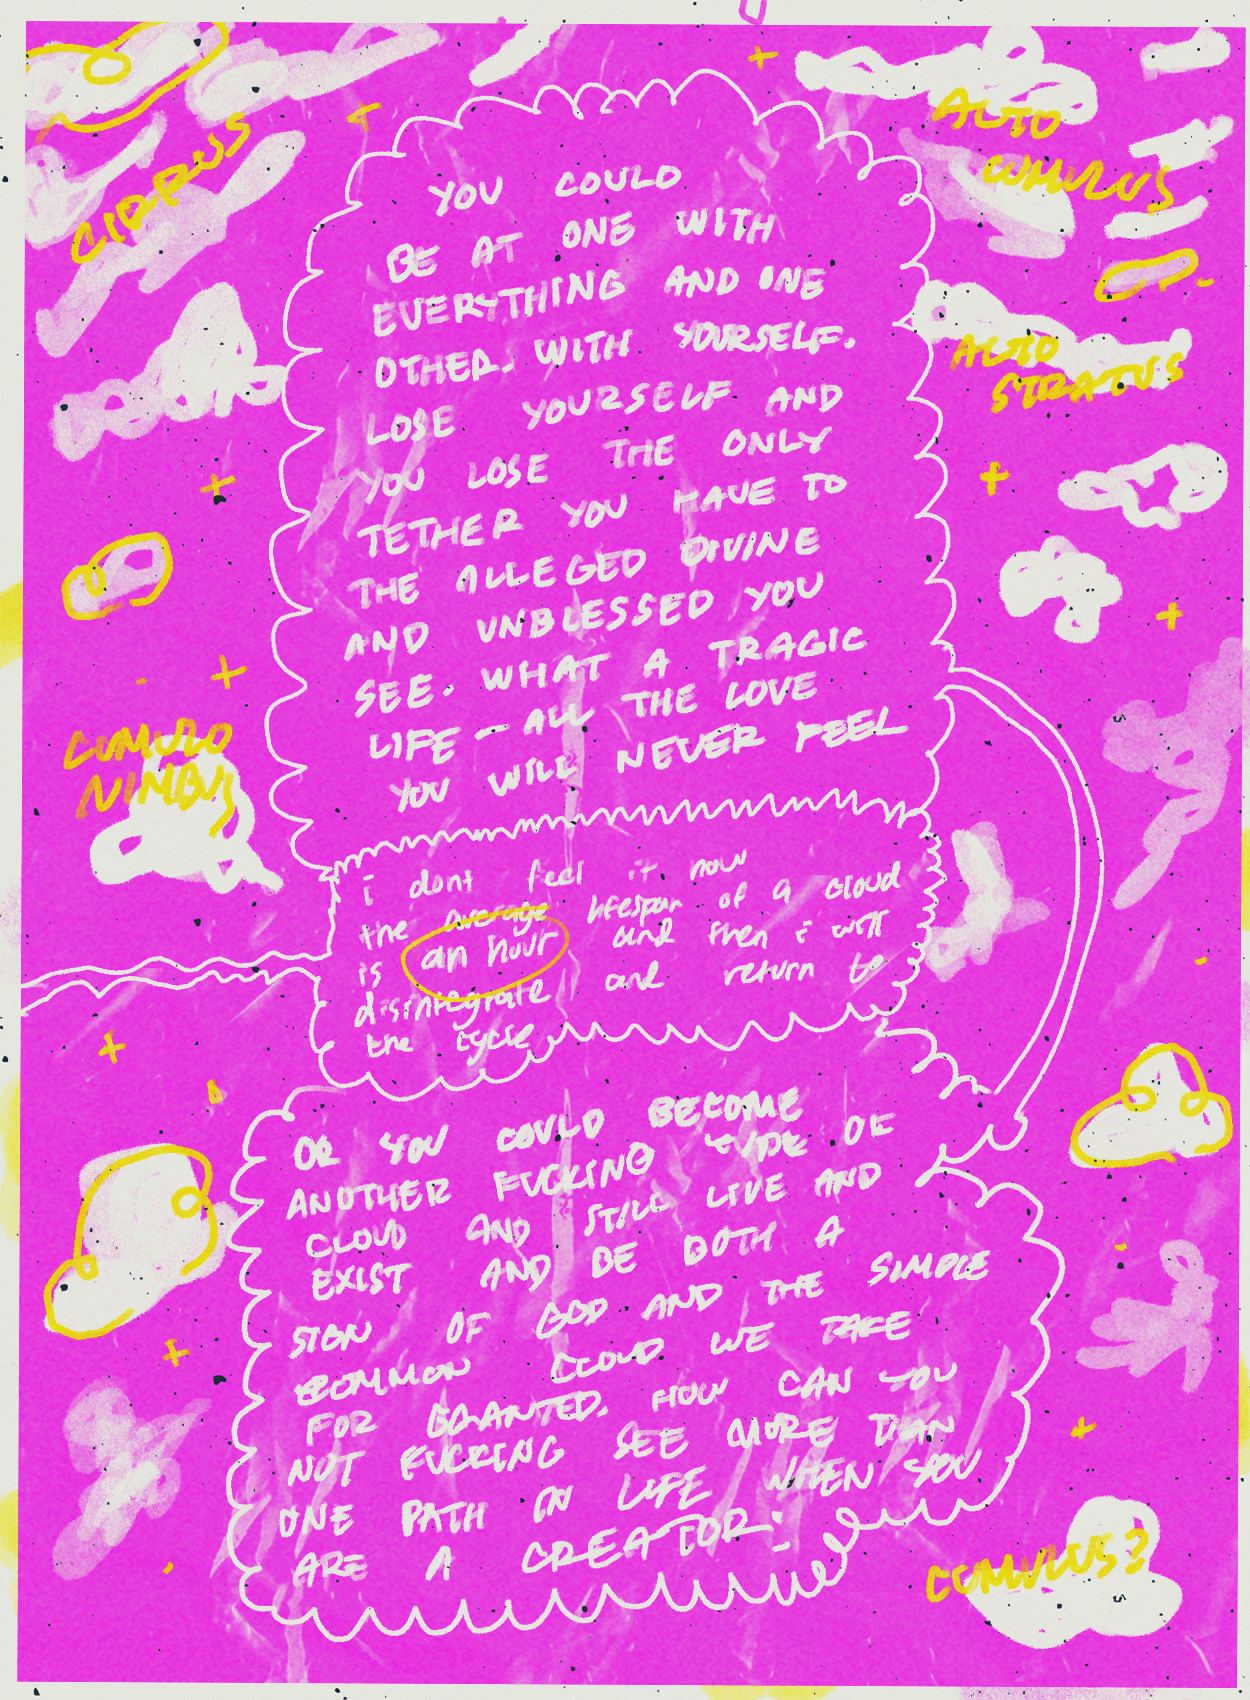 CIRRUS
ALTO
CUMULUS
ALTO
STRATUS
YOU COULD
BE AT ONE WITH
EVERYTHING AND ONE
OTHER. WITH YOURSELF.
LOSE YOURSELF AND
YOU LOSE THE ONLY
TETHER YOU HAVE TO
THE ALLEGED DIVINE
AND UNBLESSED YOU
SEE. WHAT A TRAGIC
LIFE - ALL THE LOVE
YOU WILL NEVER FEEL
CUMULO
NIMBUS
i dont feel it now
the average lifespan of a cloud
is an hour and then i will
disintegrate and return to
the cycle
OR YOU COULD BECOME
ANOTHER FUCKING TYPE OF
CLOUD AND STILL LIVE AND
EXIST AND BE BOTH A
SIGN OF GOD AND THE SIMPLE
COMMON CLOUD WE TAKE
FOR GRANTED. HOW CAN YOU
NOT FUCKING SEE MORE THAN
ONE PATH IN LIFE WHEN YOU
ARE A CREATOR?
CUMULUS?